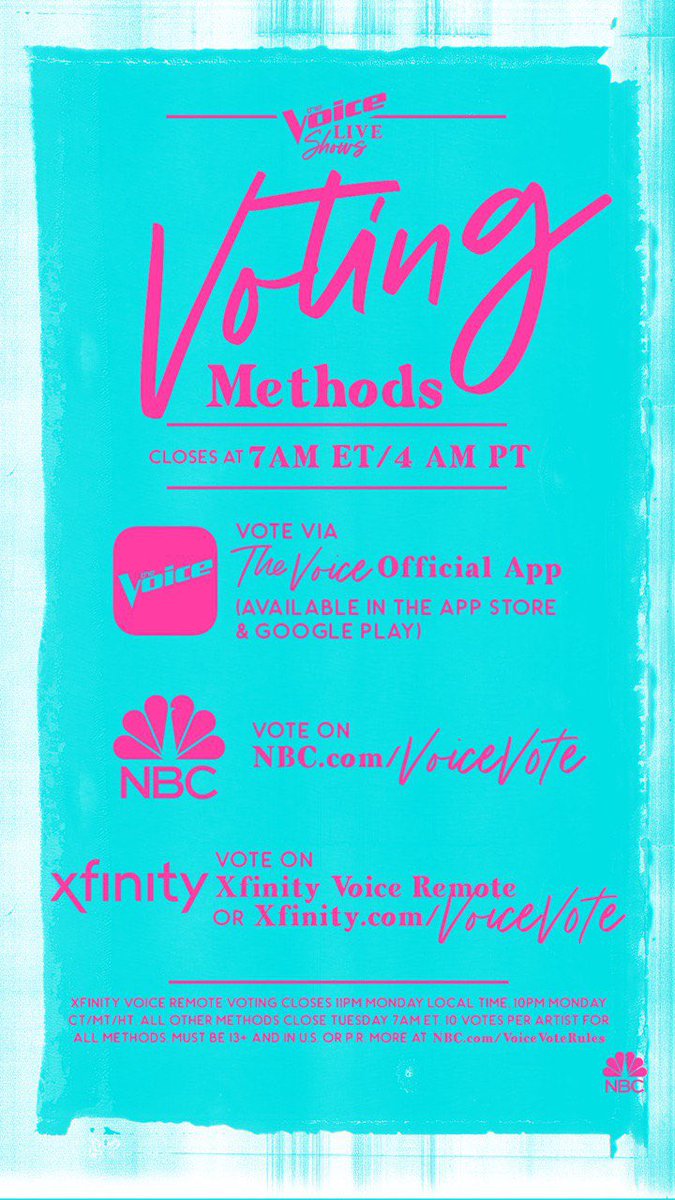 the Voice
LIVE
Shows
Voting
Methods
CLOSES AT 7AM ET/4 AM PT
the Voice
VOTE VIA
The Voice Official App
(AVAILABLE IN THE APP STORE
& GOOGLE PLAY)
NBC
VOTE ON
NBC.com/VoiceVote
xfinity
VOTE ON
Xfinity Voice Remote
OR Xfinity.com/VoiceVote
XFINITY VOICE REMOTE VOTING CLOSES 11PM MONDAY LOCAL TIME, 10PM MONDAY
CT/MT/HT. ALL OTHER METHODS CLOSE TUESDAY 7AM ET. 10 VOTES PER ARTIST FOR
ALL METHODS. MUST BE 13+ AND IN U.S. OR P.R. MORE AT NBC.com/VoiceVoteRules
NBC